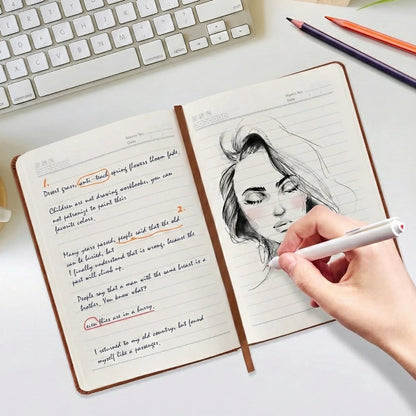 Memo No.
Date
1.
Desert grass, anti-track spring flowers bloom fade.
Children are not drawing workbooks, you can
not patronize to paint their
favorite colors.
2.
Many years passed, people said that the old
can be buried, but
I finally understand that is wrong, because the
past will climb up.
People say that a man with the same breast is a
brother. You know what?
even flies are in a hurry.
I returned to my old country, but found
myself like a passenger.
Memo No.
Date